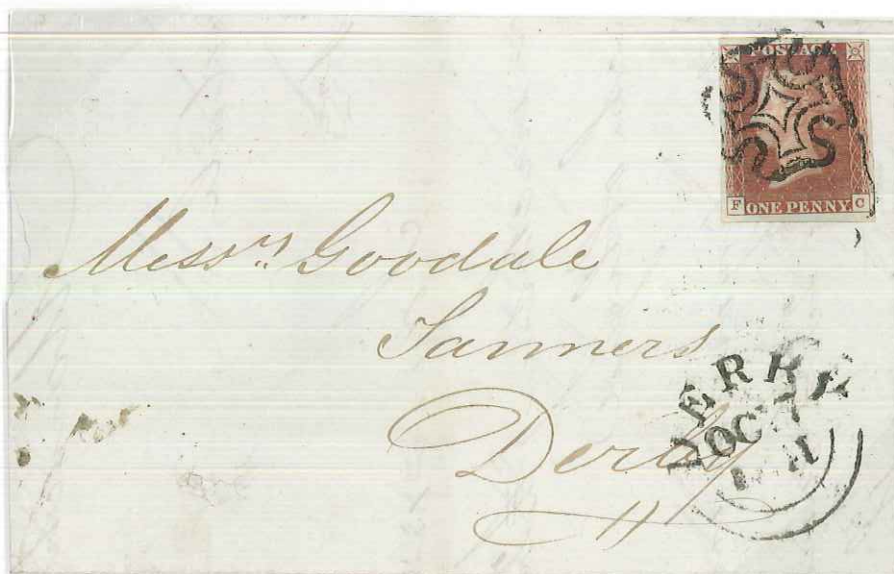 POSTAGE
F ONE PENNY. C
Messrs Goodale
Tanners
Derby
OC 7